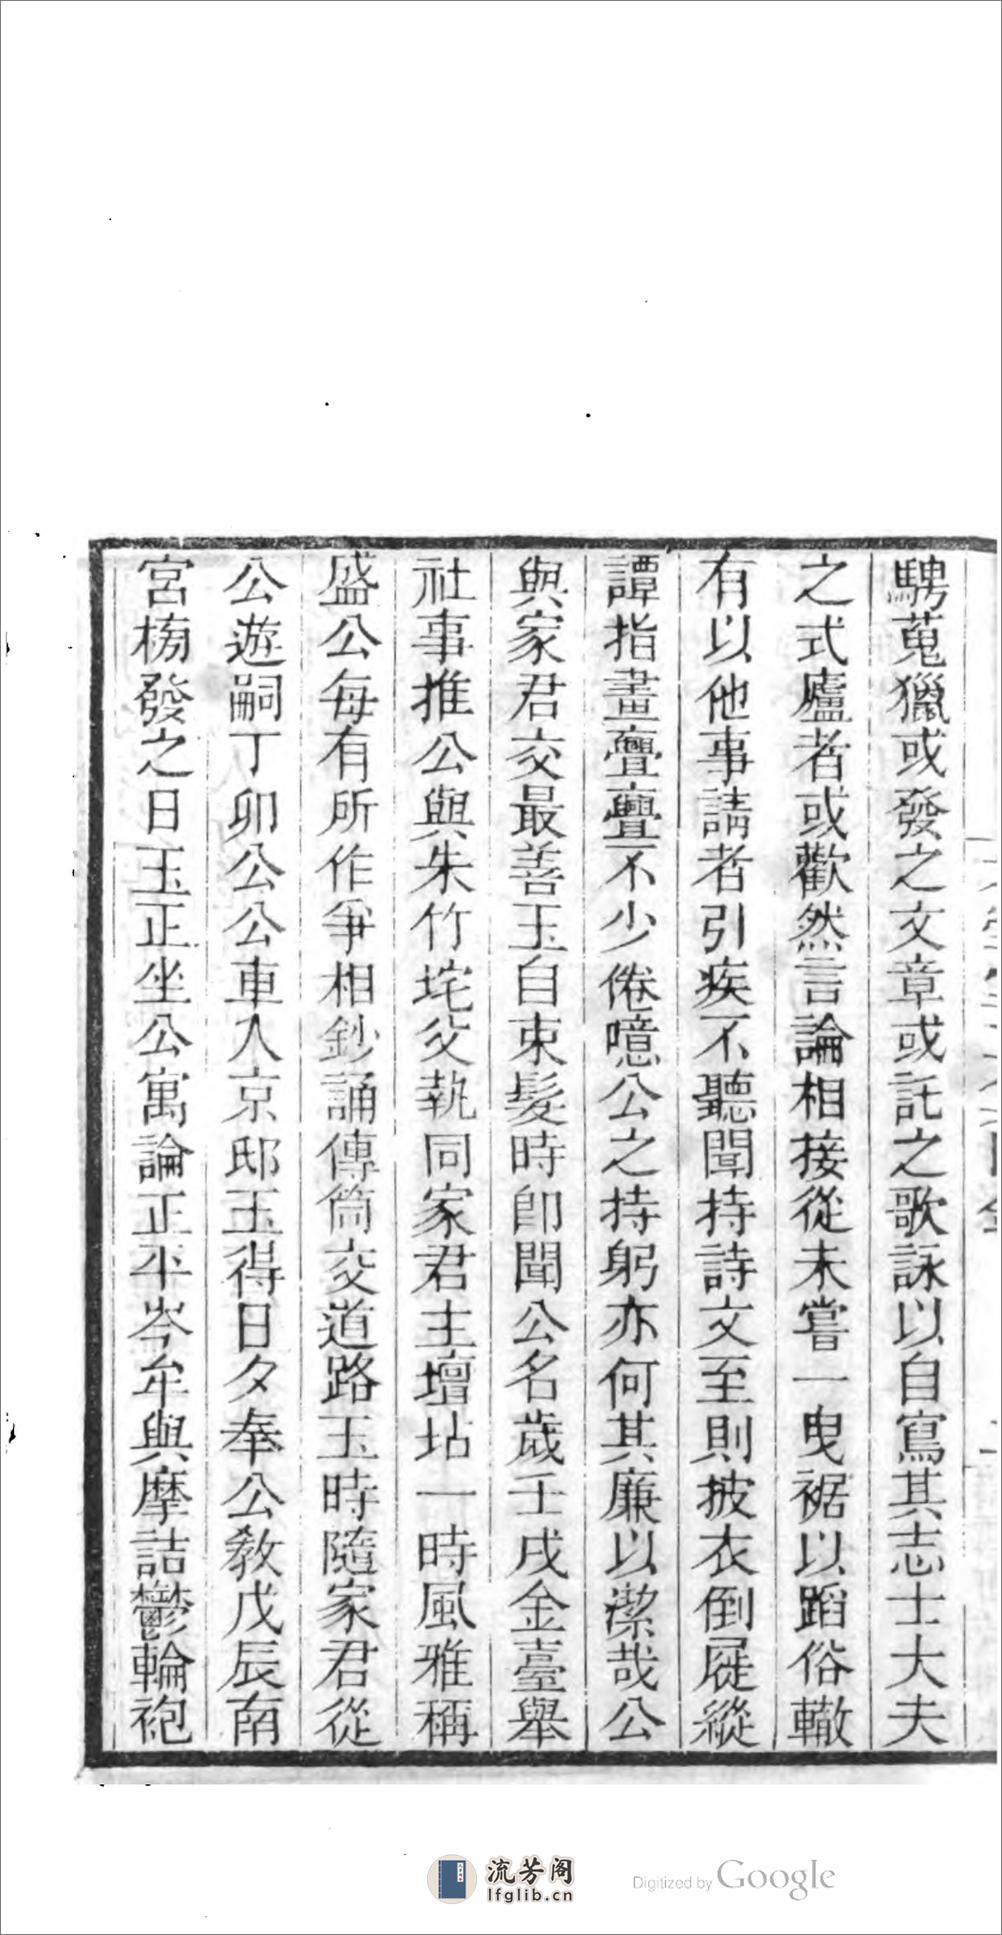 騁蒐獵或發之文章或託之歌詠以自寫其志士大夫
之式廬者或歡然言論相接從未嘗一曳裾以蹈俗轍
有以他事請者引疾不聽聞持詩文至則披衣倒屣縱
譚指畫亹亹不少倦噫公之持躬亦何其廉以潔哉公
與家君交最善玉自束髮時卽聞公名歲壬戌金臺舉
社事推公與朱竹垞父執同家君主壇坫一時風雅稱
盛公每有所作爭相鈔誦傳筒交道路玉時隨家君從
公遊嗣丁卯公公車入京邸玉得日夕奉公教戊辰南
宮榜發之日玉正坐公寓論正平岑牟與摩詰鬱輪袍
流芳阁
lfglib.cn
Digitized by Google